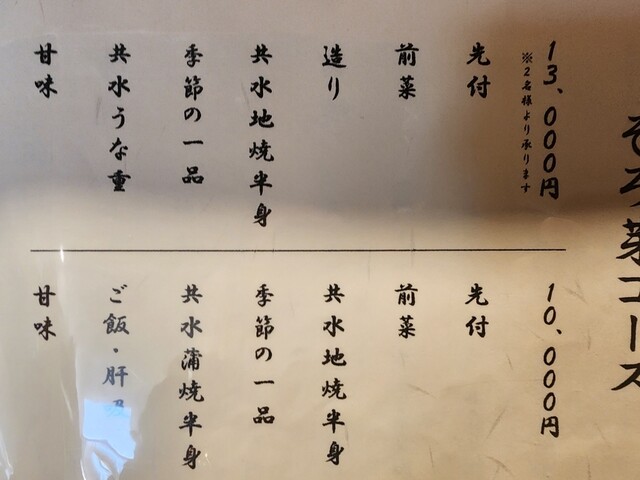 13、000円
※2名様より承ります
先付
前菜
造り
共水地焼半身
季節の一品
共水うな重
甘味
10、000円
先付
前菜
共水地焼半身
季節の一品
共水蒲焼半身
ご飯・肝
甘味